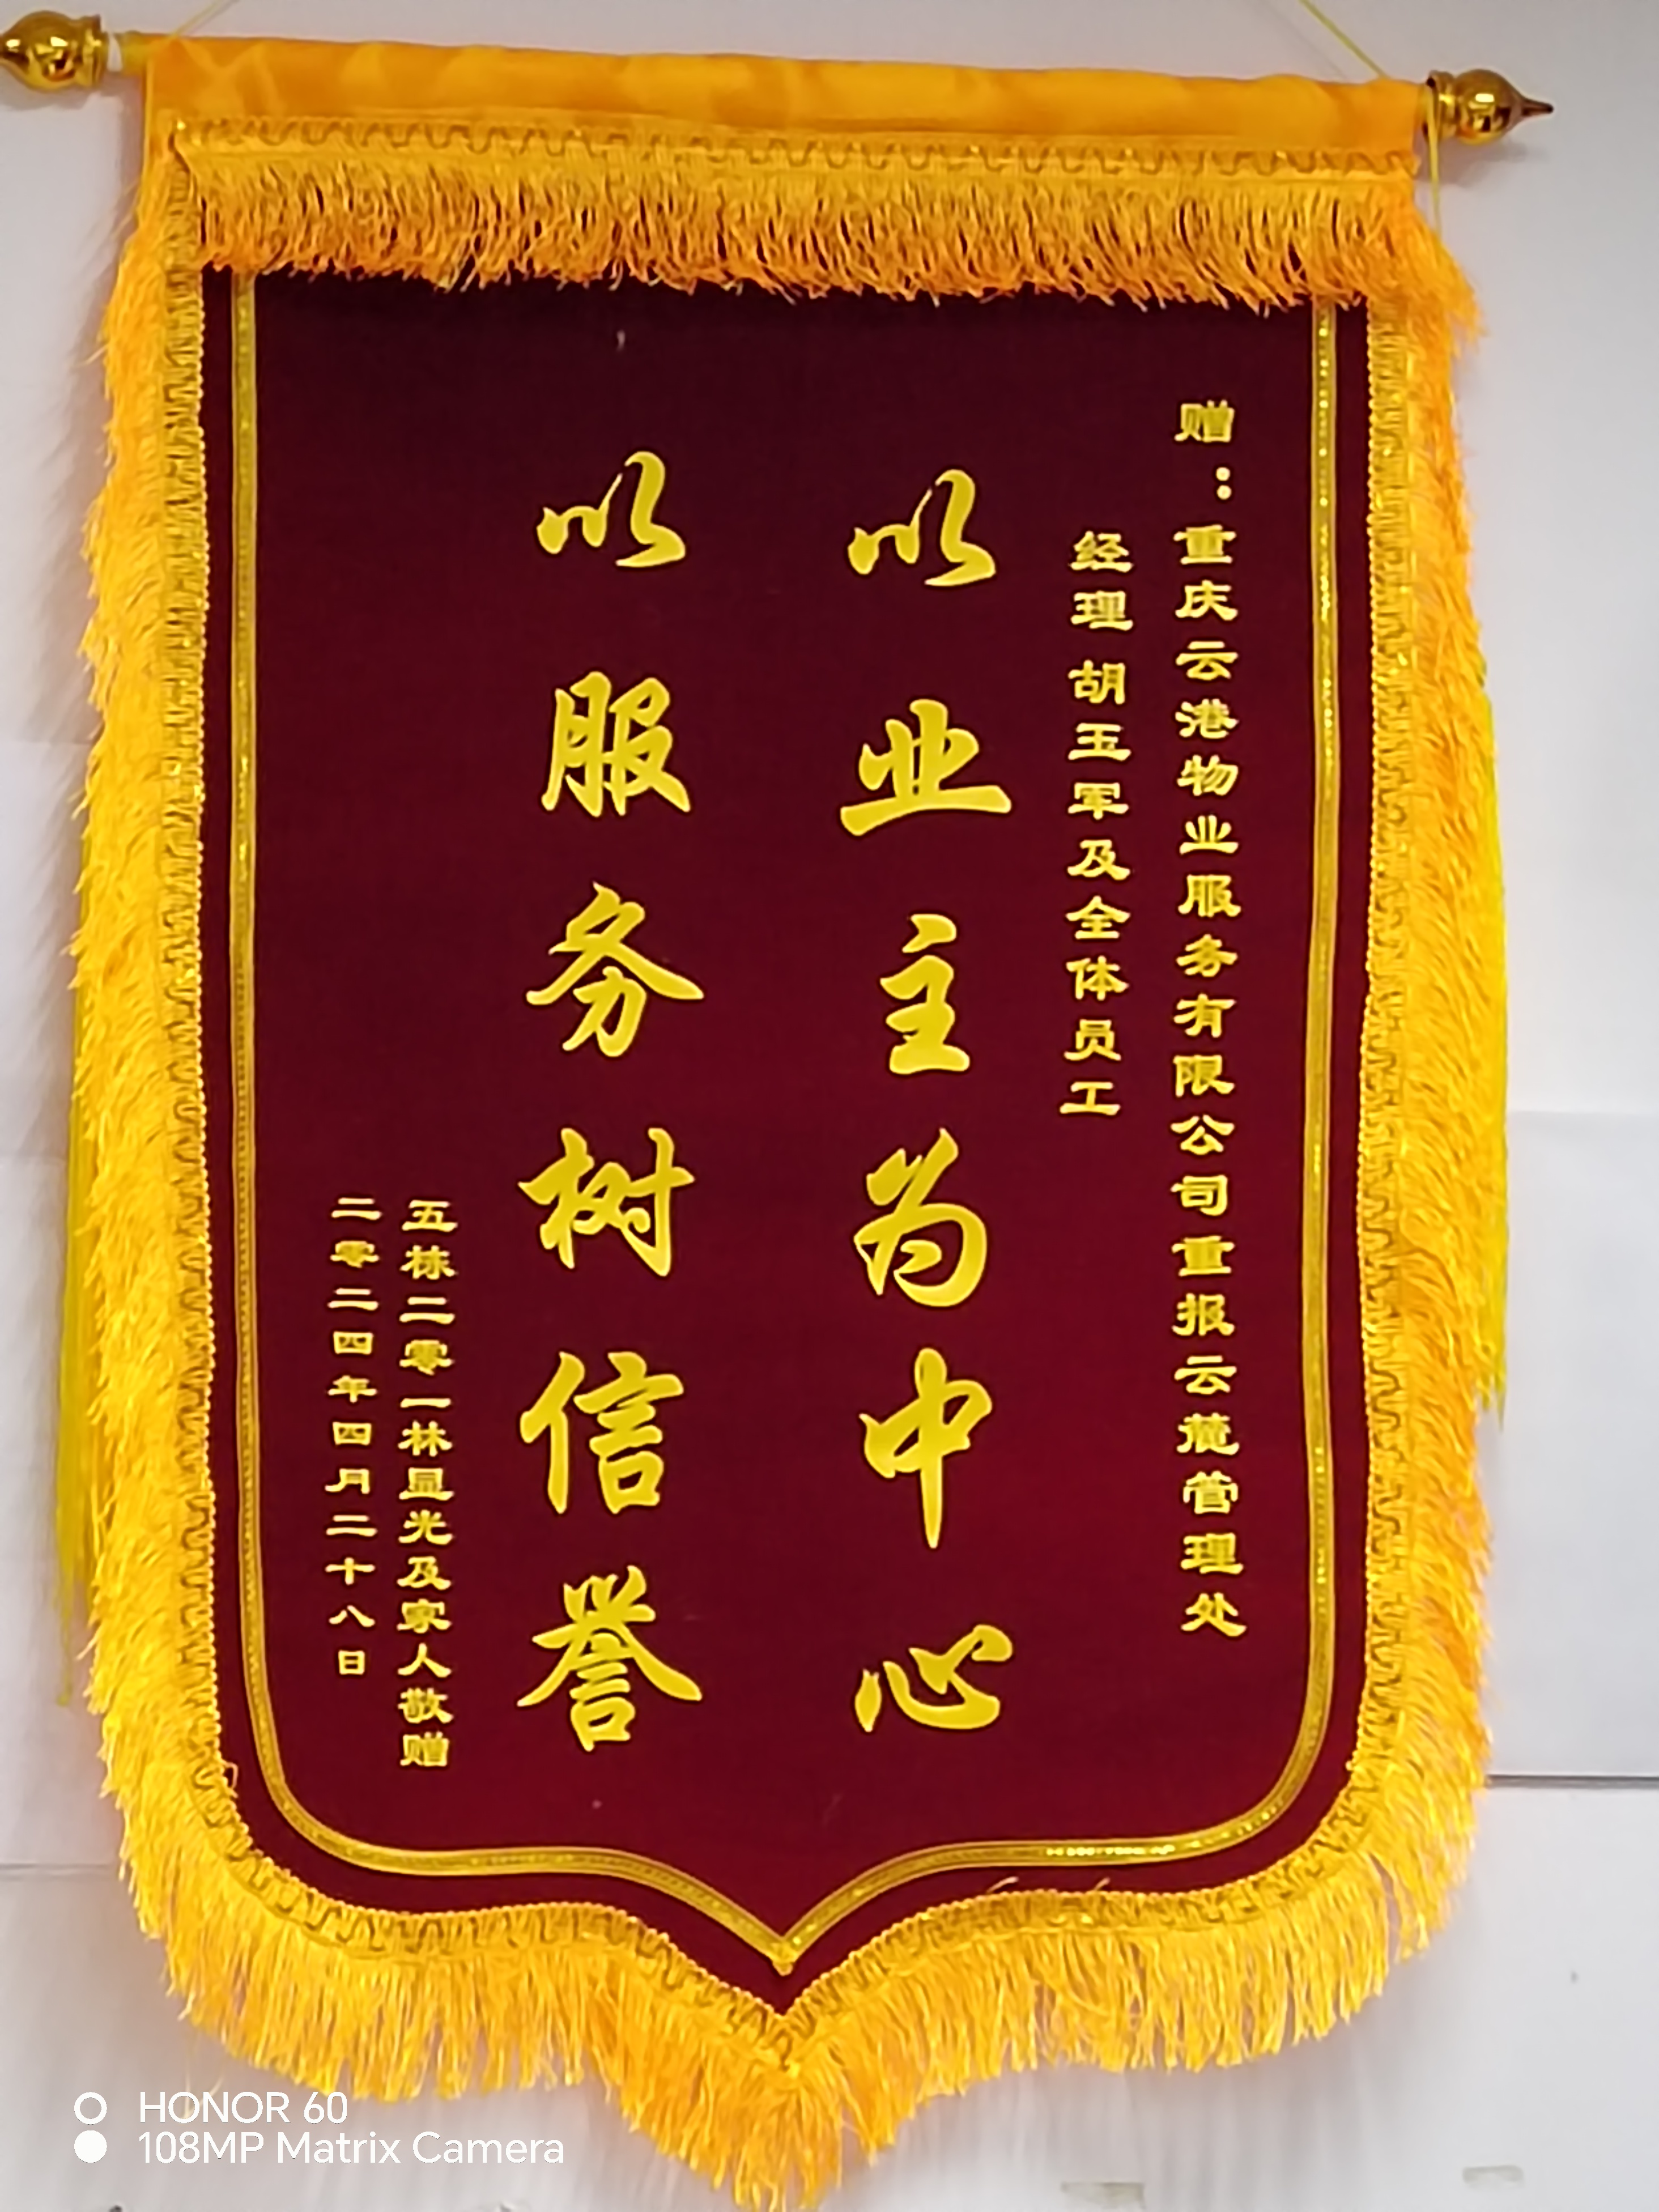 赠：重庆云港物业服务有限公司重报云麓管理处
经理胡玉军及全体员工
以业主为中心
以服务树信誉
五栋二零一林显光及家人敬赠
二零二四年四月二十八日
HONOR 60
108MP Matrix Camera